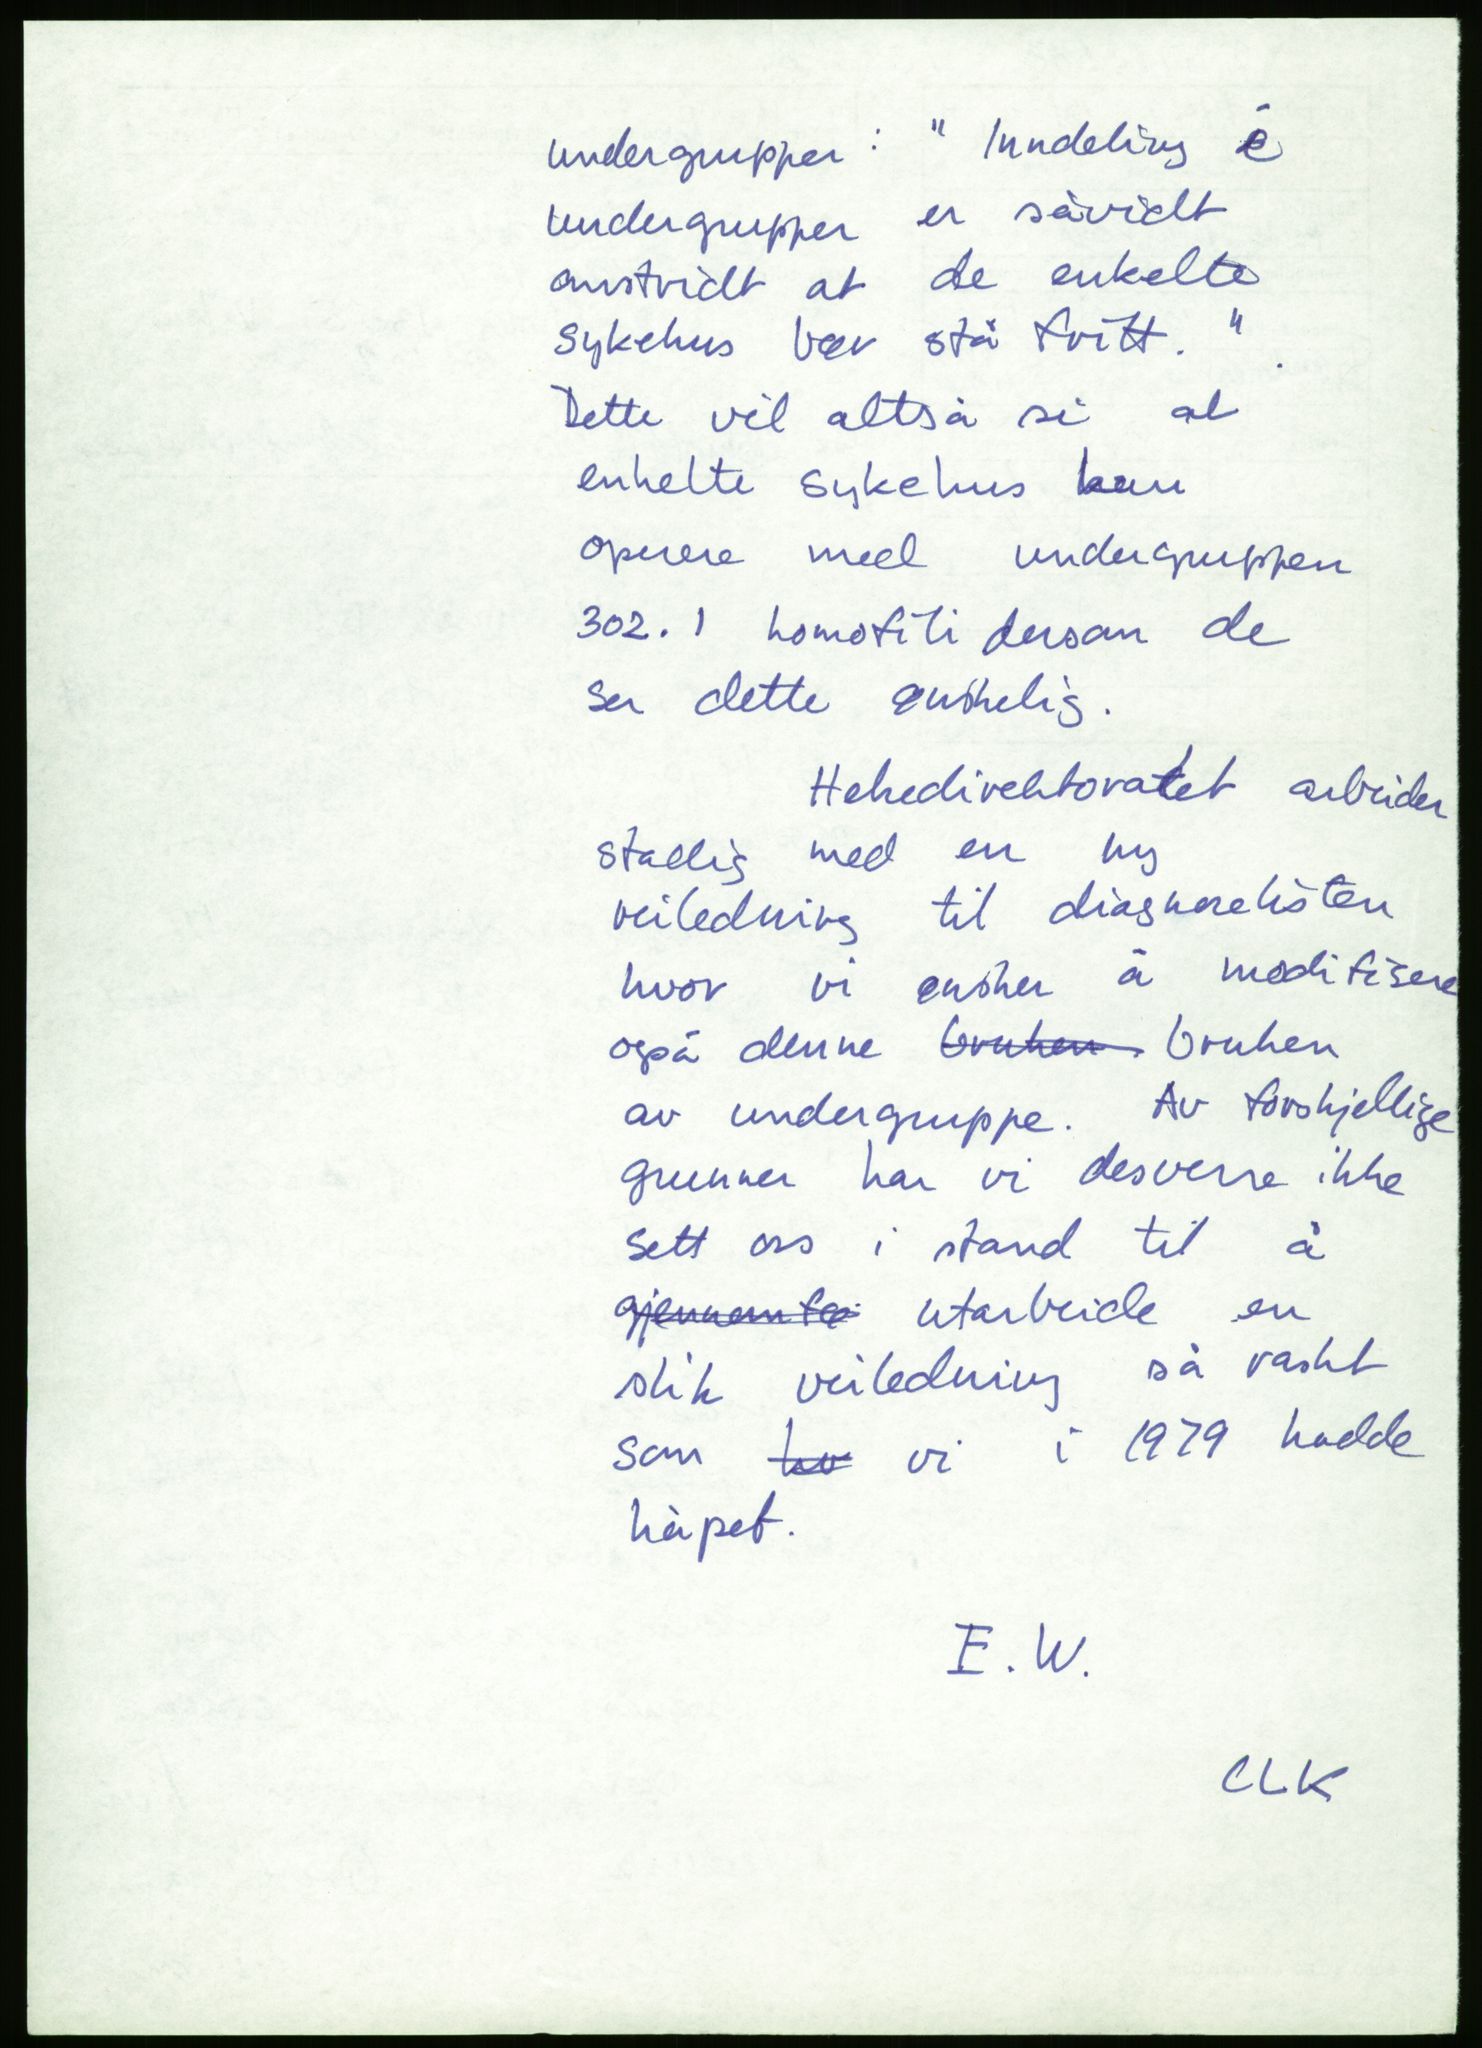 undergrupper: "Inndeling i
undergrupper er såvidt
omstridt at de enkelte
sykehus bør stå fritt."
Dette vil altså si at
enkelte sykehus kan
operere med undergruppen
302.1 homofili dersom de
ser dette ønskelig.
Helsedirektoratet arbeider
stadig med en ny
veiledning til diagnoselisten
hvor vi ønsker å modifisere
også denne bruken bruken
av undergruppe. Av forskjellige
grunner har vi desverre ikke
sett oss i stand til å
gjennomfø utarbeide en
slik veiledning så raskt
som hv vi i 1979 hadde
håpet.
E.W.
CLK